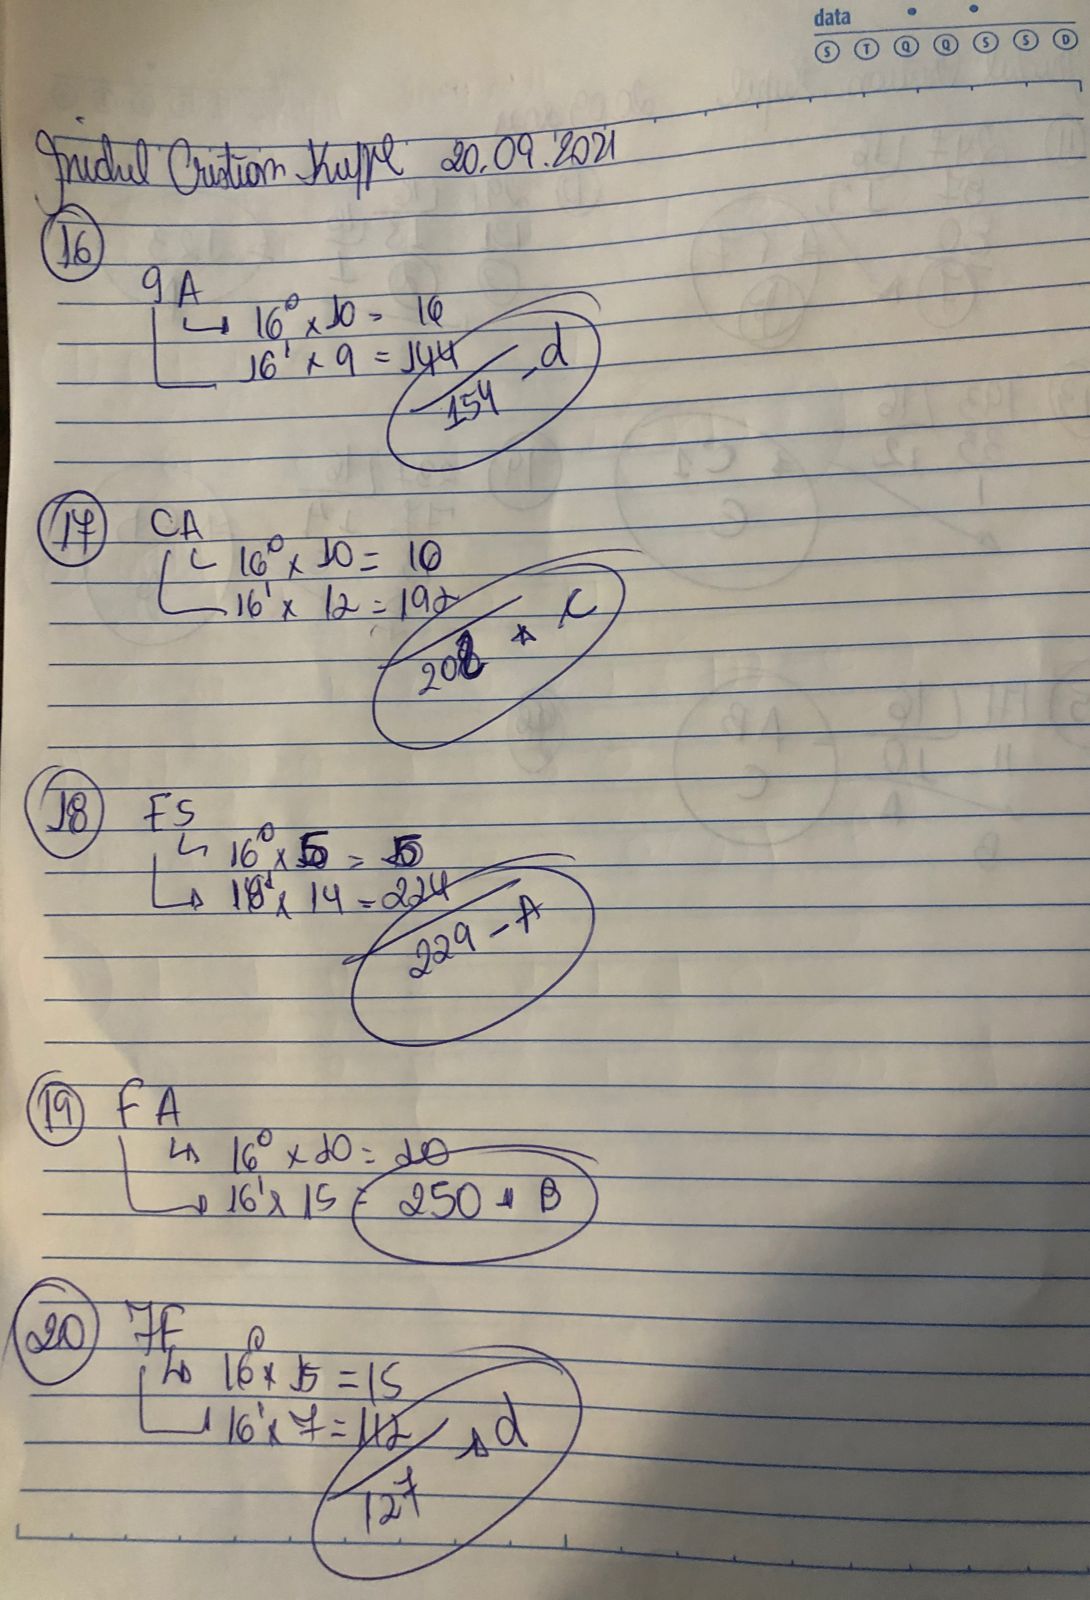 data
S T Q Q S S D
Cristian 20.09.2021
16
9A
16⁰ × 10 = 10
16¹ × 9 = 144
154 - d
17 CA
16⁰ × 10 = 10
16¹ × 12 = 192
202 → C
18 E5
16⁰ × 5 = 5
16¹ × 14 = 224
229 - A
19 FA
16⁰ × 10 = 10
16¹ × 15 = 250 → B
20 7F
16⁰ × 15 = 15
16¹ × 7 = 112
127 → d